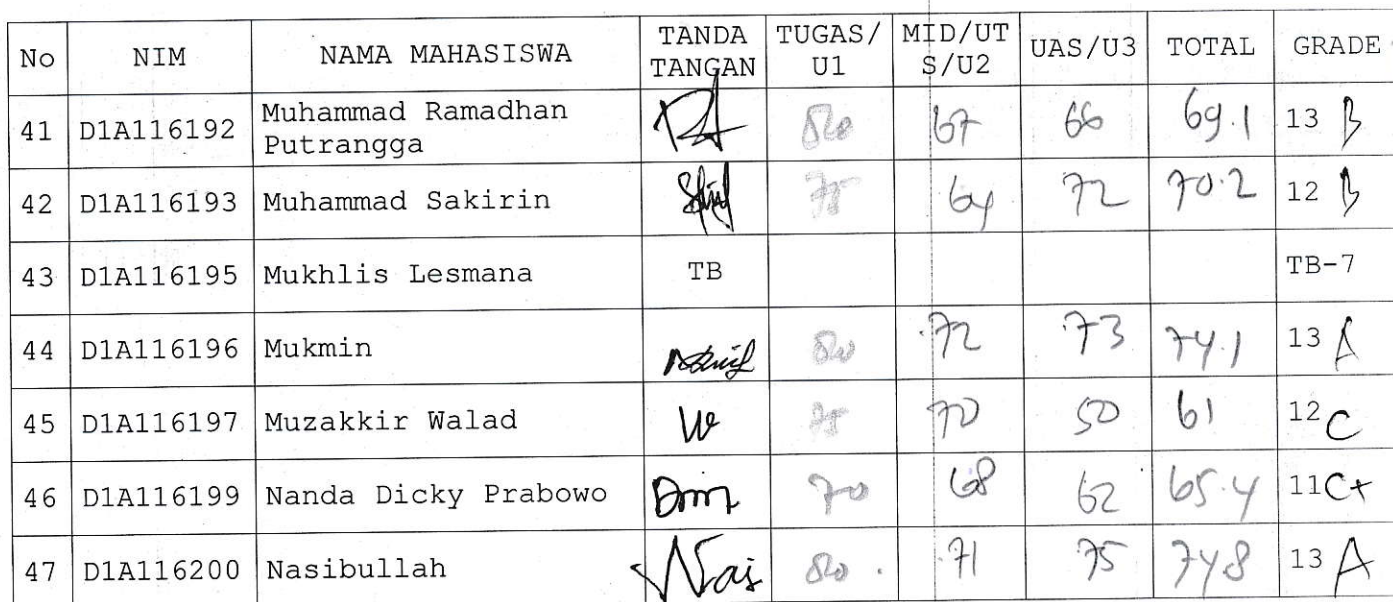 No NIM NAMA MAHASISWA TANDA TANGAN TUGAS/ U1 MID/UT S/U2 UAS/U3 TOTAL GRADE
41 D1A116192 Muhammad Ramadhan Putrangga 80 67 66 69.1 13 B
42 D1A116193 Muhammad Sakirin 75 64 72 70.2 12 B
43 D1A116195 Mukhlis Lesmana TB TB-7
44 D1A116196 Mukmin 80 72 73 74.1 13 A
45 D1A116197 Muzakkir Walad 75 70 50 61 12 C
46 D1A116199 Nanda Dicky Prabowo 70 68 62 65.4 11 C+
47 D1A116200 Nasibullah 80 71 75 74.8 13 A